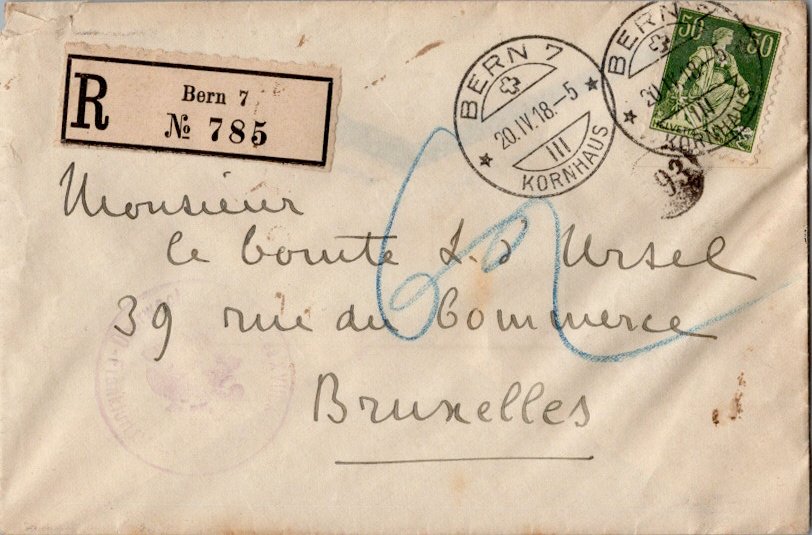 R
Bern 7
№ 785
BERN 7
20.IV.18.–5
III
KORNHAUS
BERN
20.IV.18.–5
III
KORNHAUS
50 50
HELVETIA
93
Monsieur
le Comte L. d'Ursel
39 rue du Commerce
Bruxelles